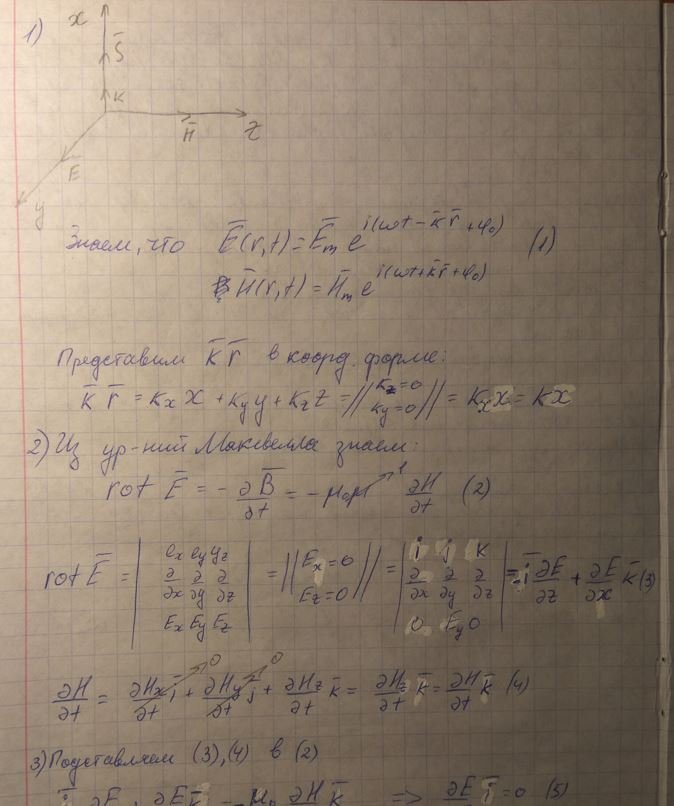 1)
x
S̄
K
H̄
Z
Ē
y
Знаем, что Ē(r,t) = Ē_m e^{i(ωt - k̄ r̄ + φ₀)} (1)
H̄(r,t) = H̄_m e^{i(ωt + k̄ r̄ + φ₀)}
Представим k̄ r̄ в коорд. форме:
k̄ r̄ = k_x x + k_y y + k_z z = || k_z = 0 k_y = 0 || = k_x x = kx
2) Из ур-ний Максвелла знаем:
rot Ē = - ∂B̄/∂t = - μ₀μ ↗1 ∂H̄/∂t (2)
rot Ē = | e_x e_y y_z ∂/∂x ∂/∂y ∂/∂z E_x E_y E_z | = || E_x = 0 E_z = 0 || = | i j k ∂/∂x ∂/∂y ∂/∂z 0 E_y 0 | = -ī ∂E/∂z + ∂E/∂x k̄ (3)
∂H̄/∂t = ∂H_x/∂t ī ↗0 + ∂H_y/∂t j̄ ↗0 + ∂H_z/∂t k̄ = ∂H_z/∂t k̄ = ∂H/∂t k̄ (4)
3) Подставляем (3), (4) в (2)
ī ∂E ∂E k̄ μ₀ ∂H k̄ => ∂E ī = 0 (5)